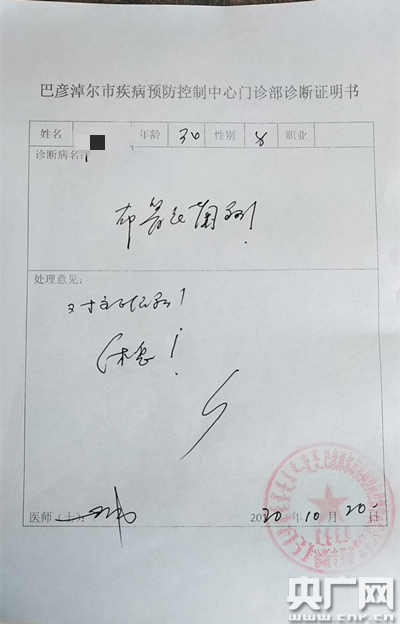 巴彦淖尔市疾病预防控制中心门诊部诊断证明书
姓名 年龄 30 性别 职业
诊断病名:
布鲁氏菌病!
处理意见:
对症治疗!
休息!
医师(士):
2020 年 10 月 20 日
央广网
www.cnr.cn